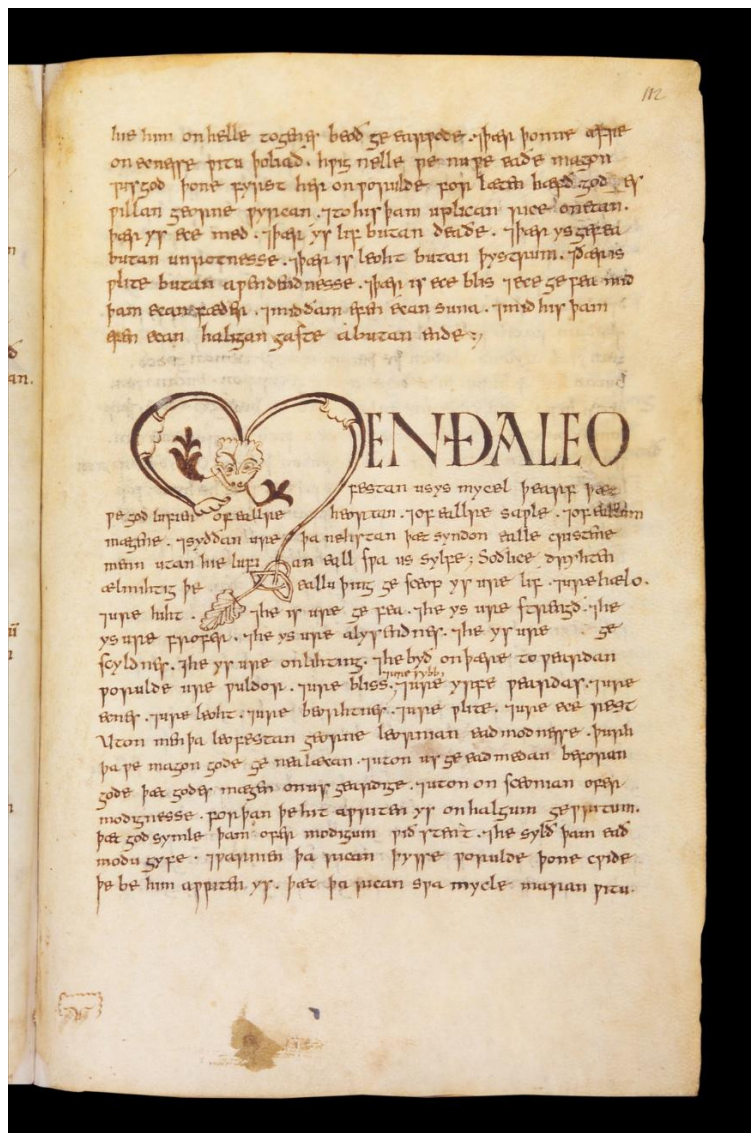 hie him on helle togenes beoð ge earwode. ⁊þær þonne æfre
on ecnesse witu þoliað. hwig nelle we nu þe eaðe magon
god þone fyrst her on worulde for læten hæfð god es
willan georne wyrcan. ⁊to his þam uplican rice onettan.
þær ys ece med. ⁊þær ys lif butan deaðe. ⁊þær ys gefea
butan unrotnesse. ⁊þær is leoht butan þystrum. ⁊ðær is
wlite butan awendednesse. ⁊þær is ece blis ⁊ece ge fea mid
þam ecan fæder. ⁊mid ðam efen ecan suna. ⁊mid his þam
efen ecan haligan gaste a butan ende:,
MEN ÐA LEO
festan us ys mycel þearf þæt
we god lufien of eallre heortan. ⁊of eallre saple. ⁊of eallum
mægene. ⁊syððan ure þa nehstan þæt syndon ealle cristene
menn utan hie lufian eall swa us sylfe; Soðlice dryhten
ælmihtig þe eallu þing ge sceop ys ure lif. ⁊ure hælo.
⁊ure hiht. ⁊he is ure ge fea. ⁊he ys ure strengð. ⁊he
ys ure frofer. ⁊he ys ure alysendnes. ⁊he ys ure ge
scyldnes. ⁊he ys ure onlihting. ⁊he byð on þære to weardan
worulde ure wuldor. ⁊ure bliss. ⁊ure sybb ⁊ure yrfe weardas. ⁊ure
ecnes. ⁊ure leoht. ⁊ure beorhtnes. ⁊ure wlite. ⁊ure ece rest
Uton men þa leofestan georne leornian eadmodnesse. þurh
þa we magon gode ge nealæcan. ⁊uton us ge eadmedan beforan
gode þæt godes mægen on us geardige. ⁊uton on scunian ofer
modignesse. for þan þe hit awriten ys on halgum gewritum.
þæt god symle þam ofer modigum wið stent. ⁊he sylð þam ead
modu gyfe. ⁊warnien þa rican þysse worulde þone cwide
þe be him awriten ys. þæt þa rican swa mycle maran witu.
112